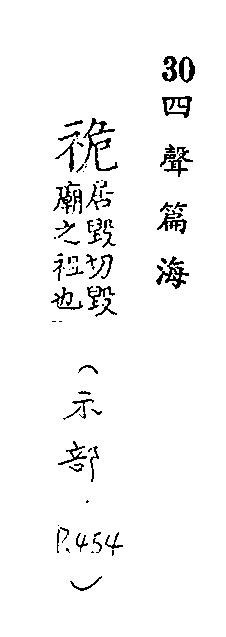 30四聲篇海
祪居毀切毀
廟之祖也
(示部.P.454)